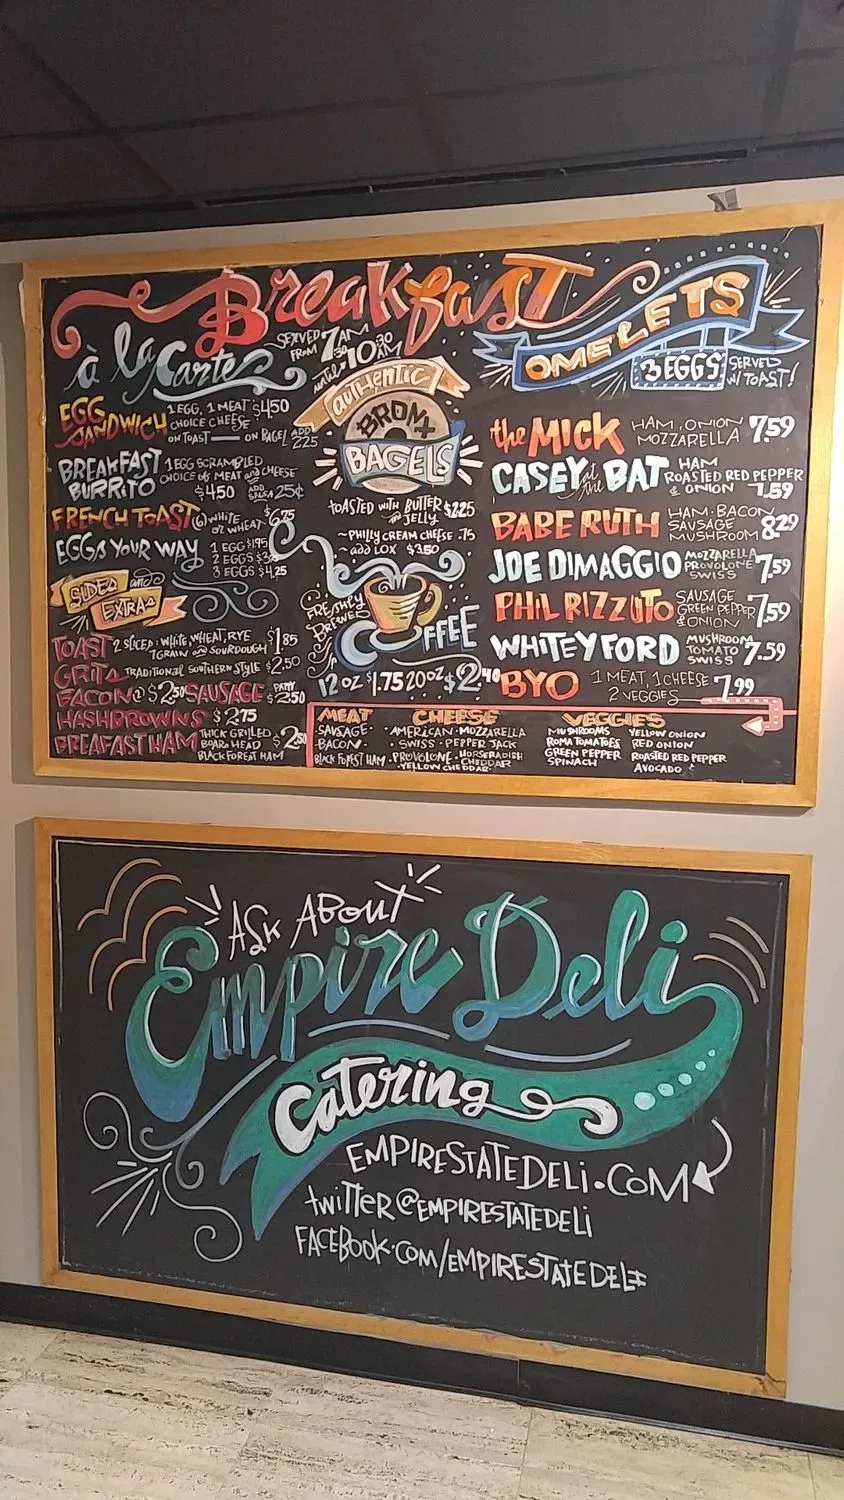 Breakfast
à la Carte
SERVED FROM 7AM
until 10:30 AM
EGG SANDWICH
1 EGG, 1 MEAT $4.50
CHOICE CHEESE
ON TOAST — ON BAGEL ADD 2.25
BREAKFAST BURRITO
1 EGG SCRAMBLED
CHOICE of MEAT and CHEESE
$4.50 ADD SALSA 25¢
FRENCH TOAST (6) WHITE OR WHEAT $6.75
EGGS YOUR WAY
1 EGG $1.95
2 EGGS
3 EGGS $4.25
SIDES and EXTRAS
TOAST 2 SLICED: WHITE, WHEAT, RYE
7 GRAIN and SOURDOUGH $1.85
GRITS TRADITIONAL SOUTHERN STYLE $2.50
BACON $2.50 SAUSAGE PATTY $2.50
HASHBROWNS $2.75
BREAFAST HAM THICK GRILLED
BOARS HEAD
BLACK FOREST HAM
AUTHENTIC
BRONX
BAGELS
TOASTED WITH BUTTER or JELLY $2.25
~PHILLY CREAM CHEESE .75
~add LOX $3.50
FRESHLY BREWED
COFFEE
12 OZ $1.75 20 OZ $2.40
OMELETS
3 EGGS SERVED W/ TOAST!
the MICK HAM, ONION
MOZZARELLA 7.59
CASEY at the BAT HAM
ROASTED RED PEPPER
& ONION 7.59
BABE RUTH HAM·BACON
SAUSAGE
MUSHROOM 8.29
JOE DIMAGGIO MOZZARELLA
PROVOLONE
SWISS 7.59
PHIL RIZZUTO SAUSAGE
GREEN PEPPER
& ONION 7.59
WHITEY FORD MUSHROOM
TOMATO
SWISS 7.59
BYO 1 MEAT, 1 CHEESE
2 VEGGIES 7.99
MEAT
SAUSAGE·
BACON·
BLACK FOREST HAM
CHEESE
·AMERICAN·MOZZARELLA
·SWISS·PEPPER JACK
·PROVOLONE·HORSERADISH CHEDDAR
·YELLOW CHEDDAR·
VEGGIES
MUSHROOMS
ROMA TOMATOES
GREEN PEPPER
SPINACH
YELLOW ONION
RED ONION
ROASTED RED PEPPER
AVOCADO
ASK ABOUT
Empire Deli
Catering
EMPIRESTATEDELI.COM
twitter @EMPIRESTATEDELI
FACEBOOK.COM/EMPIRESTATEDELI